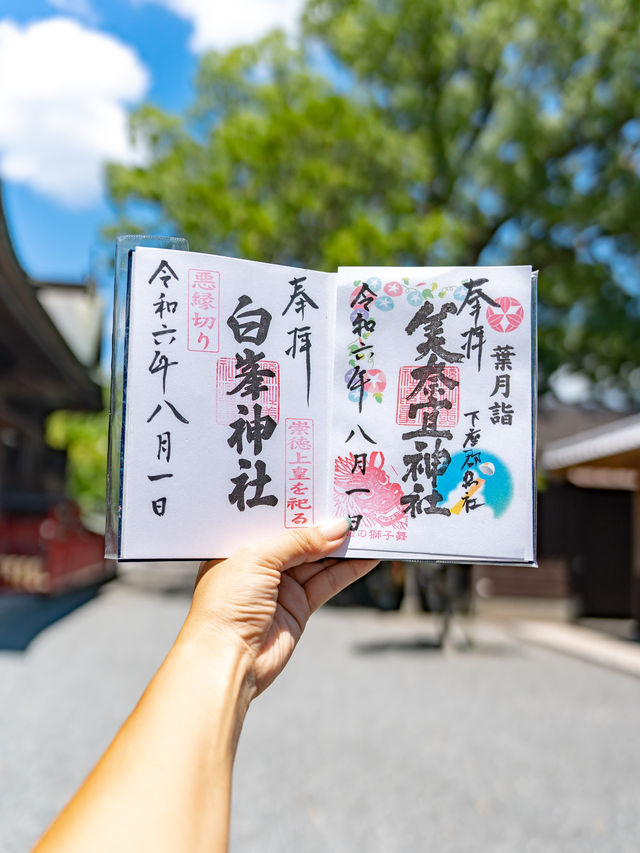 葉月詣
奉拝
美奈宜神社
の獅子舞
令和六年八月一日
奉拝
崇徳上皇を祀る
白峯神社
悪縁切り
令和六年八月一日